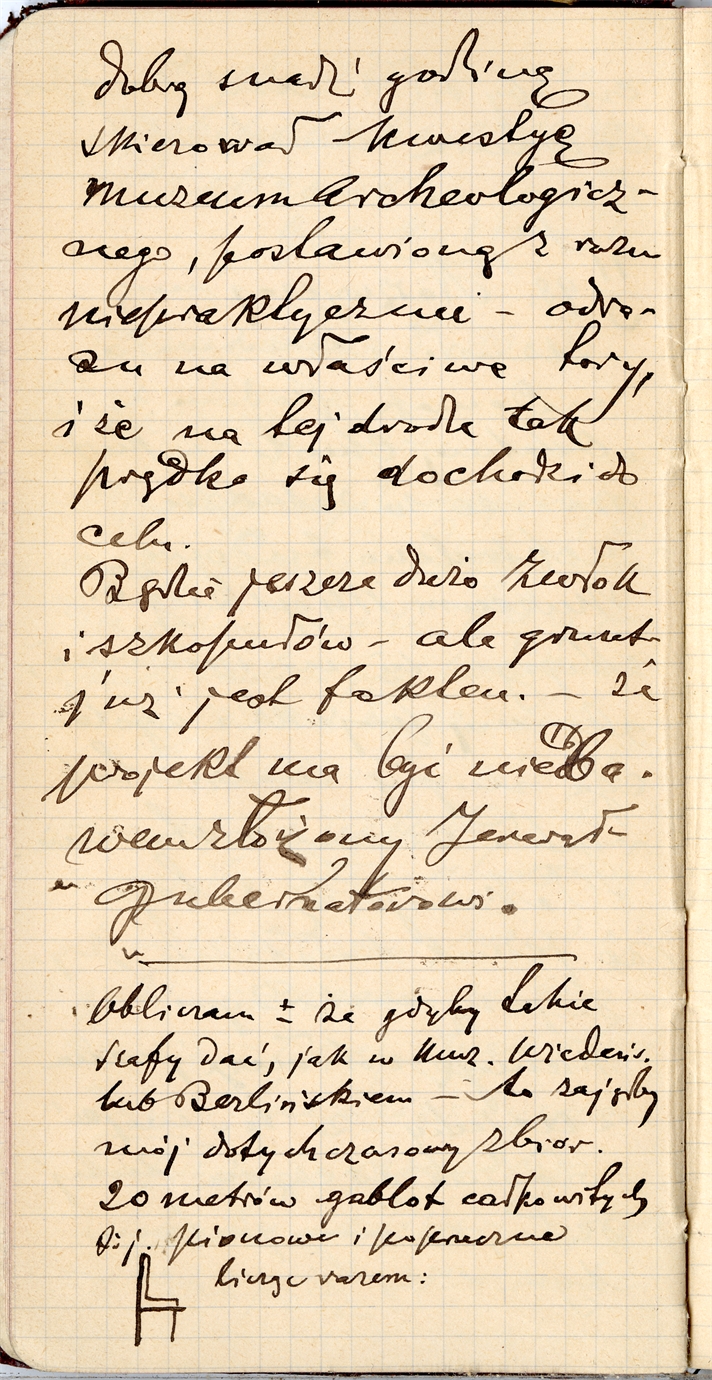 dobrą snadź godziną
skierował kwestyę
Muzeum Archeologicz-
nego, postawioną z razu
niepraktycznie – odra-
zu na właściwe tory,
i że na tej drodze tak
prędko się dochodzi do
celu.
Będzie jeszcze dużo zwłok
i szkopułów – ale grunt
już jest faktem. – że
projekt ma być nieba-
wem złożony Jenerał-
Gubernatorowi.
Obliczam ± że gdyby takie
szafy dać, jak w Muz. Wiedeńs.
lub Berlińskiem – to zająłby
mój dotychczasowy zbior.
20 metrów gablot całkowitych
t.j. pionowe i poprzeczne
licząc razem: